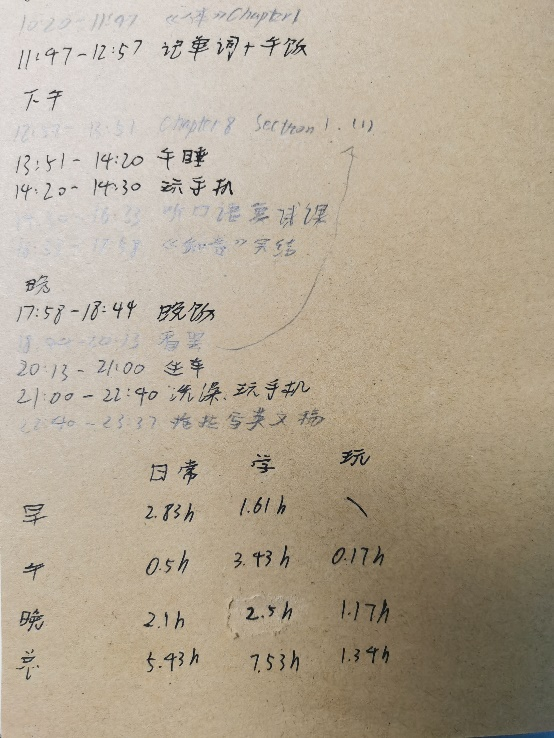 10:20-11:47 Chapter 1
11:47-12:57 记单词+午饭
下午
12:57-13:51 Chapter 8 Section 1. (1)
13:51-14:20 午睡
14:20-14:30 玩手机
听口语复试课
完结
晚
17:58-18:44 晚饭
20:13-21:00 坐车
21:00-22:40 洗澡、玩手机
22:40-23:37 写英文稿
日常 学 玩
早 2.83h 1.61h \
午 0.5h 3.43h 0.17h
晚 2.1h 2.5h 1.17h
总 5.43h 7.53h 1.34h